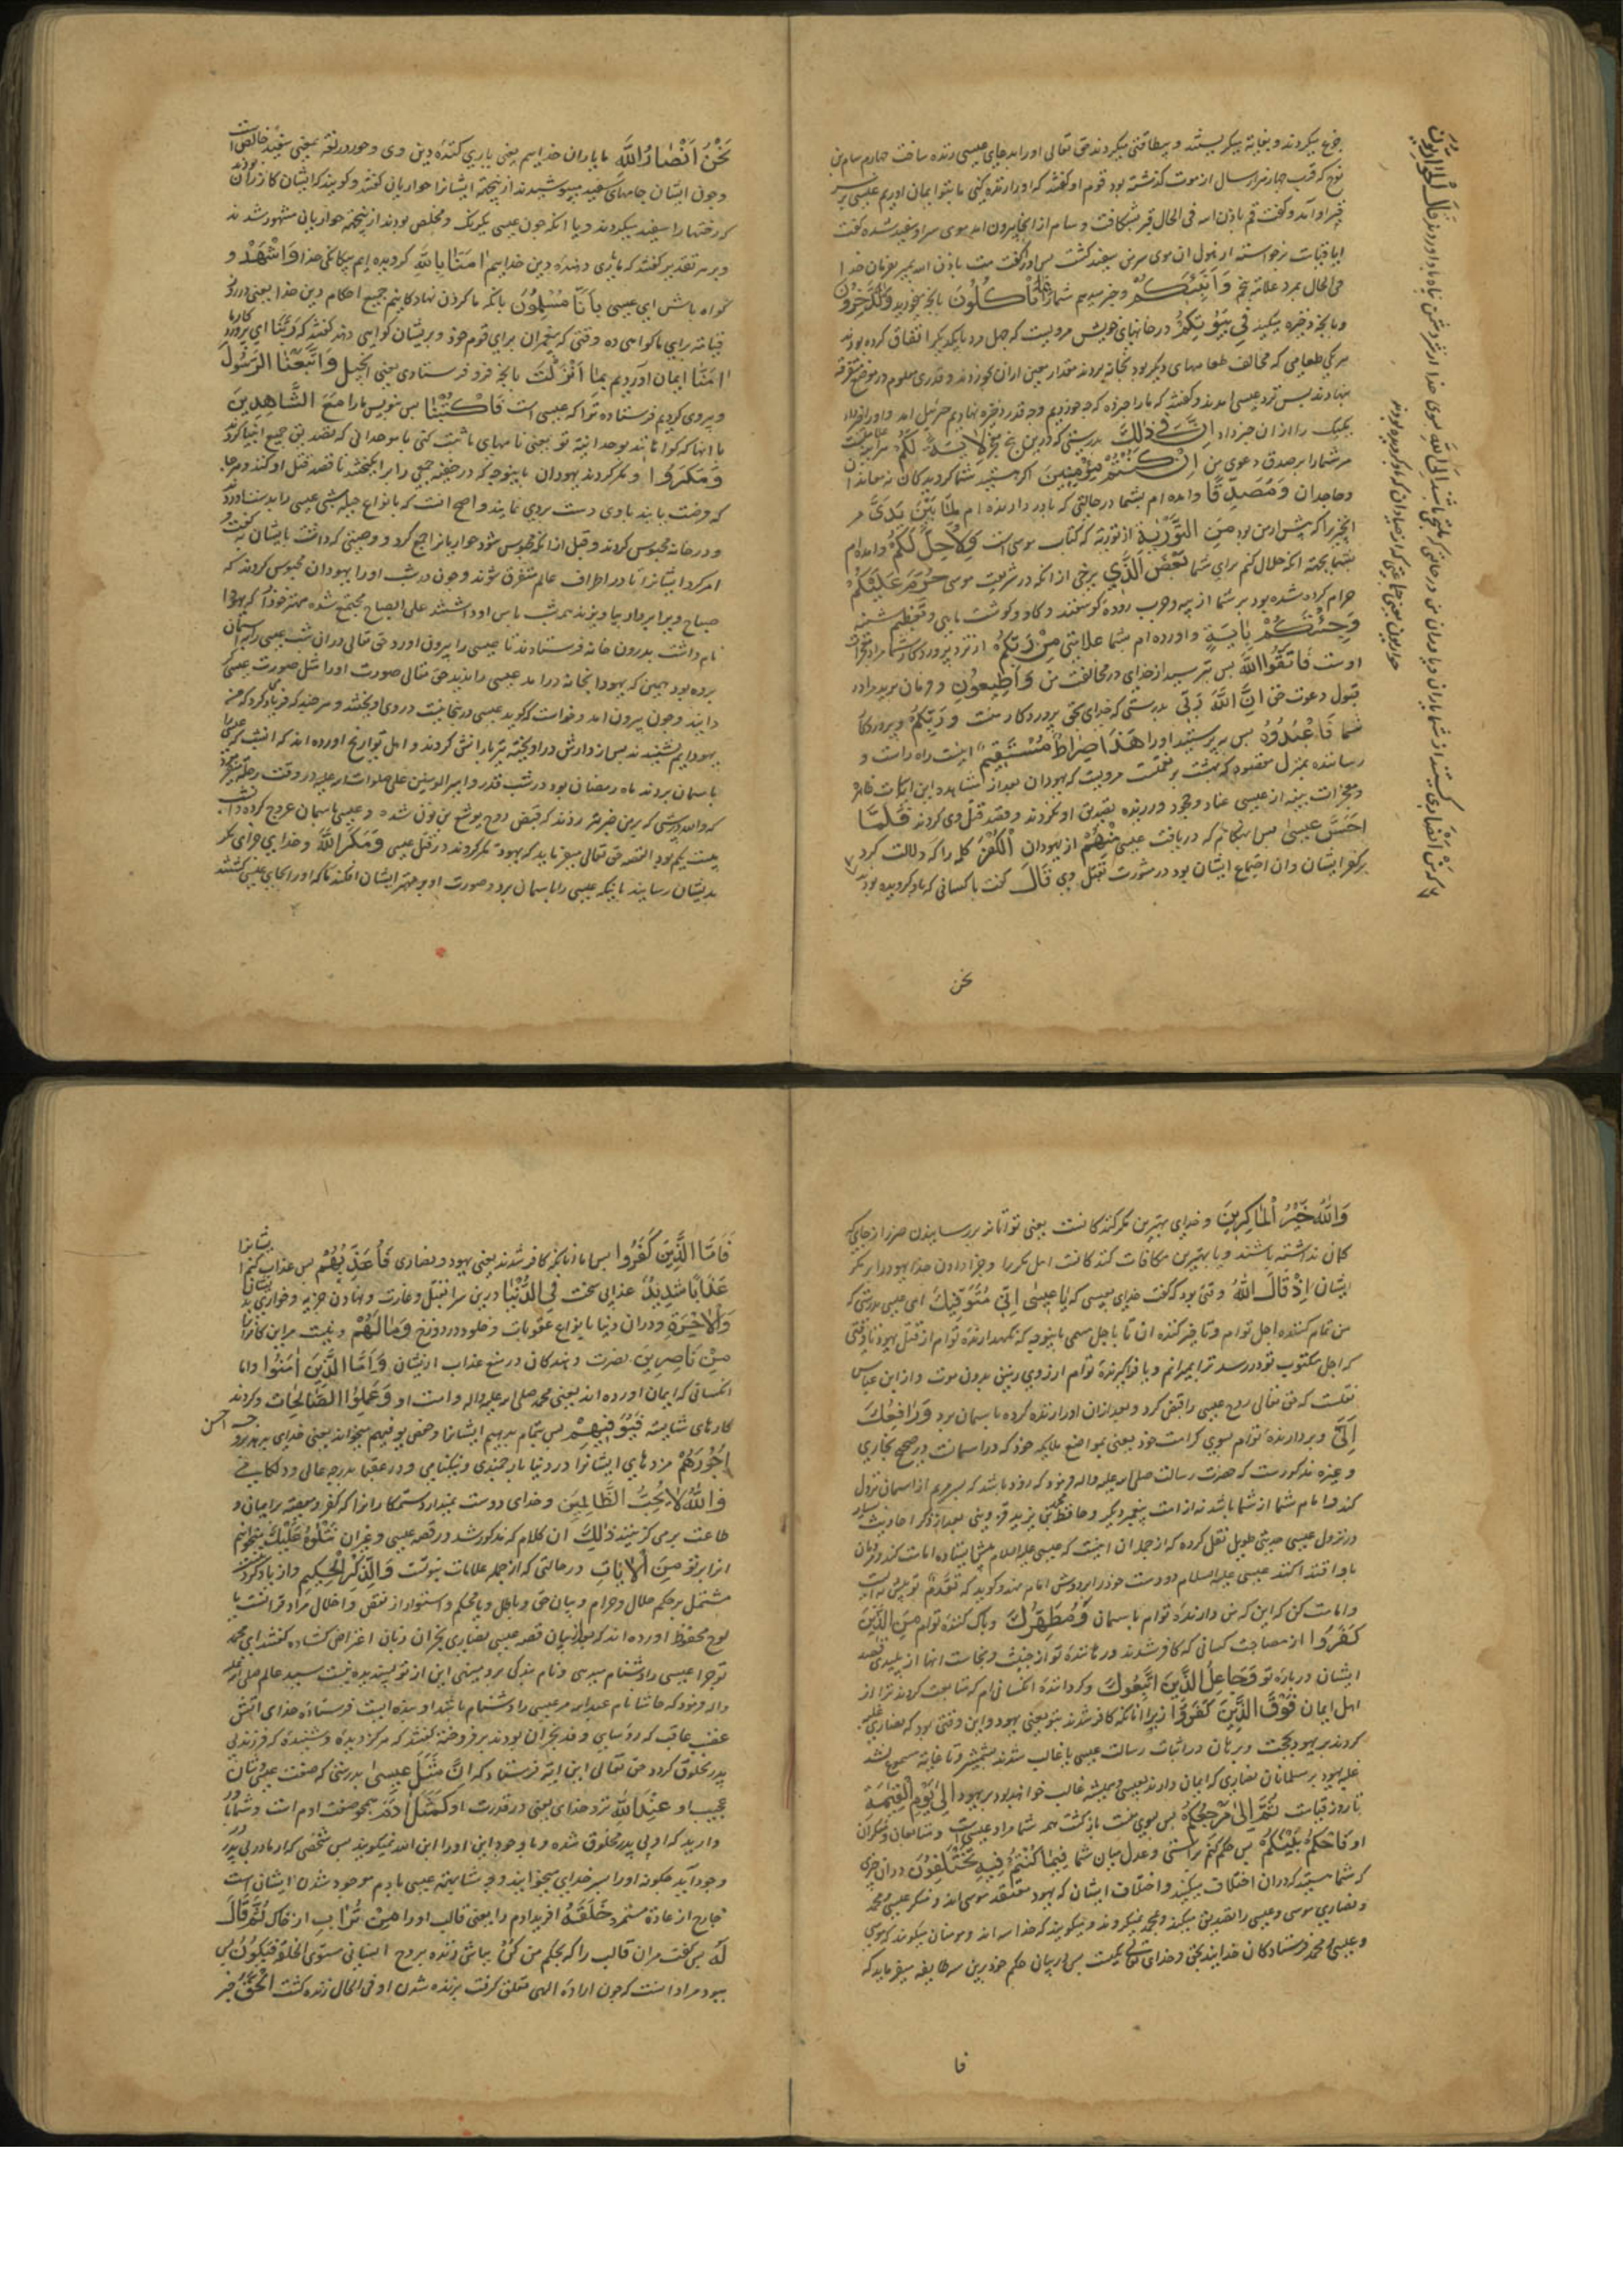 جزع میکردند و بغایة میکریستند و بیطاقتی میکردند حق تعالی اورا بدعای عیسی زنده ساخت چهارم سام بن
نوح که قرب چهار هزار سال از موت او گذشته بود قوم او گفتند که اورا زنده کنی ما بتو ایمان اوریم عیسی بر سر
قبر او امد و گفت قم باذن الله فی الحال قبر بشکافت و سام از انجا بیرون امد موی سر او سفید شده گفت
ایا قیامت برخواسته از هول ان موی سر من سفید گشت پس اورا گفت مت باذن الله بمیر بفرمان خدا
فی الحال بمرد علامة پنجم وَاُنَبِّئُكُمْ و خبر میدهم شما را بِمَا تَأْكُلُونَ بانچه میخورید وَمَا تَدَّخِرُونَ
و بانچه ذخیره میکنید فِي بُيُوتِكُمْ در خانهای خویش مرویست که چهل مرد با یکدیکر اتفاق کرده بودند
هر یکی طعامی که مخالف طعامهای دیکر بود بخانه بردند مقدار معین ازان بخوردند و قدری معلوم در موضع متفرقه
بنهادند پس نزد عیسی امدند و گفتند که مارا خبر ده که چه خوردیم و چه قدر ذخیره نهادیم جبرئیل امد و اورا
یکیک را ازان خبر داد اِنَّ فِي ذٰلِكَ بدرستی که درین پنج چیز لَاٰيَةً لَكُمْ
مر شمارا بر صدق دعوی من اِنْ كُنْتُمْ مُؤْمِنِينَ اگر هستید شما گرویدکان نه معاندان
و جاحدان وَمُصَدِّقًا وامده ام بشما در حالتی که باور دارنده ام لِمَا بَيْنَ يَدَيَّ مر
انچیز را که پیش از من بود مِنَ التَّوْرٰيةِ از توریة که کتاب موسی است وَلِاُحِلَّ لَكُمْ وامده ام
بشما بجهة انکه حلال کنم برای شما بَعْضَ الَّذِي برخی از انکه در شریعت موسی حُرِّمَ عَلَيْكُمْ
حرام کرده شده بود بر شما از پیه و چرب روده گوسفند و گاو و گوشت ماهی و تعظیم شنبه
وَجِئْتُكُمْ بِاٰيَةٍ و اورده ام بشما علامتی مِنْ رَبِّكُمْ از نزد پروردکار شما مراد معجزات
اوست فَاتَّقُوا اللّٰهَ پس بترسید از خدای در مخالفت من وَاَطِيعُونِ و فرمان برید مرا در
قبول دعوت حق اِنَّ اللّٰهَ رَبِّي بدرستی که خدای بحق پروردکار منست وَرَبُّكُمْ و پروردکار
شما فَاعْبُدُوهُ پس بپرستید اورا هٰذَا صِرَاطٌ مُسْتَقِيمٌ اینست راه راست و
رساننده بمنزل مقصود که بهشت پر نعمتست مرویست که یهودان بعد از مشاهده این ایات ظاهره
و معجزات بینه از عیسی عناد و جحود ورزیده تصدیق او نکردند و قصد قتل وی کردند فَلَمَّا
اَحَسَّ عِيسٰى پس انهنکام که دریافت عیسی مِنْهُمْ از یهودان الْكُفْرَ کلمه را که دلالت کرد
بر کفر ایشان وان اجتماع ایشان بود در مشورت بقتل وی قَالَ گفت با کسانی که باو گرویده بودند
مَنْ اَنْصَارِي کیستند از شما یاران و یاوران من در حالتی که ملتجی باشند اِلَى اللّٰهِ بسوی خدا قَالَ الْحَوَارِيُّونَ
حواریون یعنی جماعتی که از صیادان که باو گرویده بودند
نحن
نَحْنُ اَنْصَارُ اللّٰهِ ما یاران خداییم یعنی یاری کنندۀ دین وی و حور در لغة بمعنی سفید خالص است
و چون ایشان جامهای سفید میپوشیدند از ینجهة ایشانرا حواریان گفتند و گویند که ایشان کازران بودند
که رختها را سفید میکردند و یا انکه چون عیسی یکرنک و مخلص بودند از ینجهة حواریان مشهور شدند
و بر هر تقدیر گفتند که ما یاری دهندۀ دین خداییم اٰمَنَّا بِاللّٰهِ گرویده ایم بیکانکی خدا وَاشْهَدْ و
گواه باش ای عیسی بِاَنَّا مُسْلِمُونَ بانکه ما گردن نهادکانیم جمیع احکام دین خدا یعنی در روز
قیامة برای ما گواهی ده وقتی که پیغمبران برای قوم خود و بریشان گواهی دهند گفتند که رَبَّنَا ای پروردکار ما
اٰمَنَّا ایمان اوردیم بِمَا اَنْزَلْتَ بانچه فرو فرستادی یعنی انجیل وَاتَّبَعْنَا الرَّسُولَ
و پیروی کردیم فرستادۀ تو را که عیسی است فَاكْتُبْنَا پس بنویس مارا مَعَ الشَّاهِدِينَ
با انها که گواهانند بوحدانیة تو یعنی نامهای ما ثبت کنی با موحدانی که تصدیق جمیع انبیا کردند
وَمَكَرُوا و مکر کردند یهودان باینوجه که در خفیه جمعی را برانکیختند تا قصد قتل او کنند و هر جا
که فرصت یابند باوی دست بردی نمایند و اصح انست که بانواع حیله شبی عیسی را بدست اوردند
و در خانه محبوس کردند و قبل از انکه محبوس شود حواریانرا جمع کرد و وصیتی که داشت بایشان گفت و
امر کرد ایشانرا تا در اطراف عالم متفرق شوند و چون در شب اورا یهودان محبوس کردند که
صباح ویرا بر دار بیاویزند همه شب پاس او داشتند علی الصباح مجتمع شده مهتر خود را که یهودا
نام داشت بدرون خانه فرستادند تا عیسی را بیرون اورد و حق تعالی دران شب عیسی را باسمان
برده بود همین که یهودا بخانه درامد عیسی را ندید حق تعالی صورت اورا مثل صورت عیسی
دانید و چون بیرون امد و خواست که گوید عیسی در خانه نیست در وی اویختند و هر چند که فریاد کرد که من
یهودایم نشنیدند پس از دارش در اویخته تیر بارانش کردند و اهل تواریخ اورده اند که انشب که عیسی را
باسمان بردند ماه رمضان بود در شب قدر و امیر المومنین علی صلوات الله علیه در وقت رحلت
که والله درستی که برین ضربتم زدند که قبض روح یوشع بن نون شده و عیسی باسمان عروج کرده
بیست یکم بود القصه حق تعالی میفرماید که یهود مکر کردند در قتل عیسی وَمَكَرَ اللّٰهُ و خدای جزای مکر
بدیشان رسانید باینکه عیسی را باسمان برد و صورت او بر مهتر ایشان افکند تا که اورا بجای عیسی بکشتند
وَاللّٰهُ خَيْرُ الْمَاكِرِينَ و خدای بهترین مکر کنندکانست یعنی تواناتر بر رسانیدن ضرر از جایی که
کمان نداشته باشند و یا بهترین مکافات کنندکانست اهل مکر را و جزا دادن خدا یهود را بر مکر
ایشان اِذْ قَالَ اللّٰهُ وقتی بود که گفت خدای بعیسی که يَا عِيسٰى اِنِّي مُتَوَفِّيكَ ای عیسی بدرستی که
من تمام کننده اجل توام و تاخیر کننده ان تا باجل مسمی باینوجه که نکهدارندۀ توام از قتل یهود تا وقتی
که اجل مکتوب تو در رسد ترا بمیرانم و یا فراگیرندۀ توام از روی زمین بدون موت و از ابن عباس
نقلست که حق تعالی روح عیسی را قبض کرد و بعد ازان اورا زنده کرده باسمان برد وَرَافِعُكَ
اِلَيَّ و بردارندۀ توام بسوی کرامت خود یعنی بمواضع ملایکه خود که در اسمانست در صحیح بخاری
و غیره مذکورست که حضرت رسالت صلی الله علیه واله فرمود که زود باشد که پسر مریم از اسمان نزول
کند و امام شما از شما باشد نه از امت پیغمبر دیکر و حافظ محمد بن یزید قزوینی بعد از ذکر احادیث بسیار
در نزول عیسی حدیثی طویل نقل کرده که از جمله ان اینست که عیسی علیه السلام
باو اقتدا کنند عیسی علیه السلام دو دست خود را بر دوش امام نهد و گوید که تقدم تو پیش
و امامت کن که این که من دارندۀ توام باسمان وَمُطَهِّرُكَ و پاک کنندۀ توام مِنَ الَّذِينَ
كَفَرُوا از مصاحبت کسانی که کافر شدند و رهانندۀ تو از خبث و نجاست انها از پلیدی قصد
ایشان دربارۀ تو وَجَاعِلُ الَّذِينَ اتَّبَعُوكَ و گردانندۀ انکسانی ام که متابعت کردند ترا از
اهل ایمان فَوْقَ الَّذِينَ كَفَرُوا زبر انانکه کافر شدند بتو یعنی یهود و این وقتی بود که نصاری غلبه
کردند بر یهود بحجت و برهان در اثبات رسالت عیسی یا غالب شدند بشمشیر و تا غایة مسموع نشد
غلبه یهود بر مسلمانان نصاری که ایمان دارند بعیسی همیشه غالب خواهند بود بر یهود اِلٰى يَوْمِ الْقِيٰمَةِ
تا روز قیامت ثُمَّ اِلَيَّ مَرْجِعُكُمْ پس بسوی منست بازکشت همه شما مراد عیسی است و متابعان و منکران
او فَاَحْكُمُ بَيْنَكُمْ پس حکم کنم براستی و عدل میان شما فِيمَا كُنْتُمْ فِيهِ تَخْتَلِفُونَ دران چیزی
که شما هستید که دران اختلاف میکنید و اختلاف ایشان که یهود معتقد موسی اند و منکر عیسی و محمد
و نصاری موسی و عیسی را تصدیق میکنند و بمحمد نمیگروند و میگویند که خدا سه اند و مومنان میکویند که موسی
و عیسی و محمد فرستادکان خدایند بحق و خدای تعالی یکیست پس از بیان حکم خود برین سه طایفه میفرماید که
فا
فَاَمَّا الَّذِينَ كَفَرُوا پس اما انانکه کافر شدند یعنی یهود و نصاری فَاُعَذِّبُهُمْ پس عذاب کنم ایشانرا
عَذَابًا شَدِيدًا عذابی سخت فِي الدُّنْيَا درین سرا بقتل و غارت و نهادن جزیه و خواری
وَالْاٰخِرَةِ و دران دنیا بانواع عقوبات و خلود در دوزخ وَمَالَهُمْ و نیست مر این کافرانرا
مِنْ نَاصِرِينَ نصرت دهندکان در منع عذاب ازیشان وَاَمَّا الَّذِينَ اٰمَنُوا واما
انکسانی که ایمان اورده اند یعنی محمد صلی الله علیه واله وامت او وَعَمِلُوا الصَّالِحَاتِ و کردند
کارهای شایسته فَيُوَفِّيهِمْ پس تمام بدهیم ایشانرا و حفص یوفیهم میخواند یعنی خدای بدهد بر وجه احسن
اُجُورَهُمْ مزدهای ایشانرا در دنیا بارجمندی و نیکنامی و در عقبا بدرجه عالی و دلکامی
وَاللّٰهُ لَا يُحِبُّ الظَّالِمِينَ و خدای دوست نمیدارد ستمکارانرا که کفر و معصیة بر ایمان و
طاعت برمی گزینند ذٰلِكَ ان کلام که مذکور شد در قصه عیسی و غیر ان نَتْلُوهُ عَلَيْكَ میخوانیم
انرا بر تو مِنَ الْاٰيَاتِ در حالتی که از جمله علامات نبوتست وَالذِّكْرِ الْحَكِيمِ و از یاد کردنست
مشتمل بر حکم حلال و حرام و بیان حق و باطل و یا محکم و استوار از نقض و اخلال مراد قرانست یا
لوح محفوظ اورده اند که بعد از بیان قصه عیسی نصاری نجران زبان اعتراض گشاده گفتند ای محمد
تو چرا عیسی را دشنام میدهی و نام بندکی برو مینهی این از تو پسندیده نیست سید عالم صلی الله علیه
واله فرمود که حاشا نام عبدالله مر عیسی را دشنام باشد او بنده ایست فرستادۀ خدای انکس
عقب عاقب که رؤسای وفد نجران بودند برفروخته گفتند که هرکز دیدۀ و شنیدۀ که فرزندی بی
پدر مخلوق گردد حق تعالی این ایة فرستاد که اِنَّ مَثَلَ عِيسٰى بدرستی که صفت عیسی و شان
عجیب او عِنْدَ اللّٰهِ نزد خدای یعنی در قدرت او كَمَثَلِ اٰدَمَ همچو صفت ادم است و شما باور
دارید که او بی پدر مخلوق شده و با وجود این اورا ابن الله نمیکویید پس شخصی که از مادر بی پدر
وجود آید چکونه اورا پسر خدای میخوانید وجه مشابهة عیسی بادم موجود شدن ایشان است
خارج از عادة مستمره خَلَقَهُ افرید ادم را یعنی قالب اورا مِنْ تُرَابٍ از خاک ثُمَّ قَالَ
لَهُ پس گفت مران قالب را که بحکم من كُنْ بباش زنده بروح انسانی مستوی الخلقة فَيَكُونُ پس
ببود مراد انست که چون ارادۀ الهی متعلق گرفت بزنده شدن او فی الحال زنده گشت اَلْحَقُّ خبر